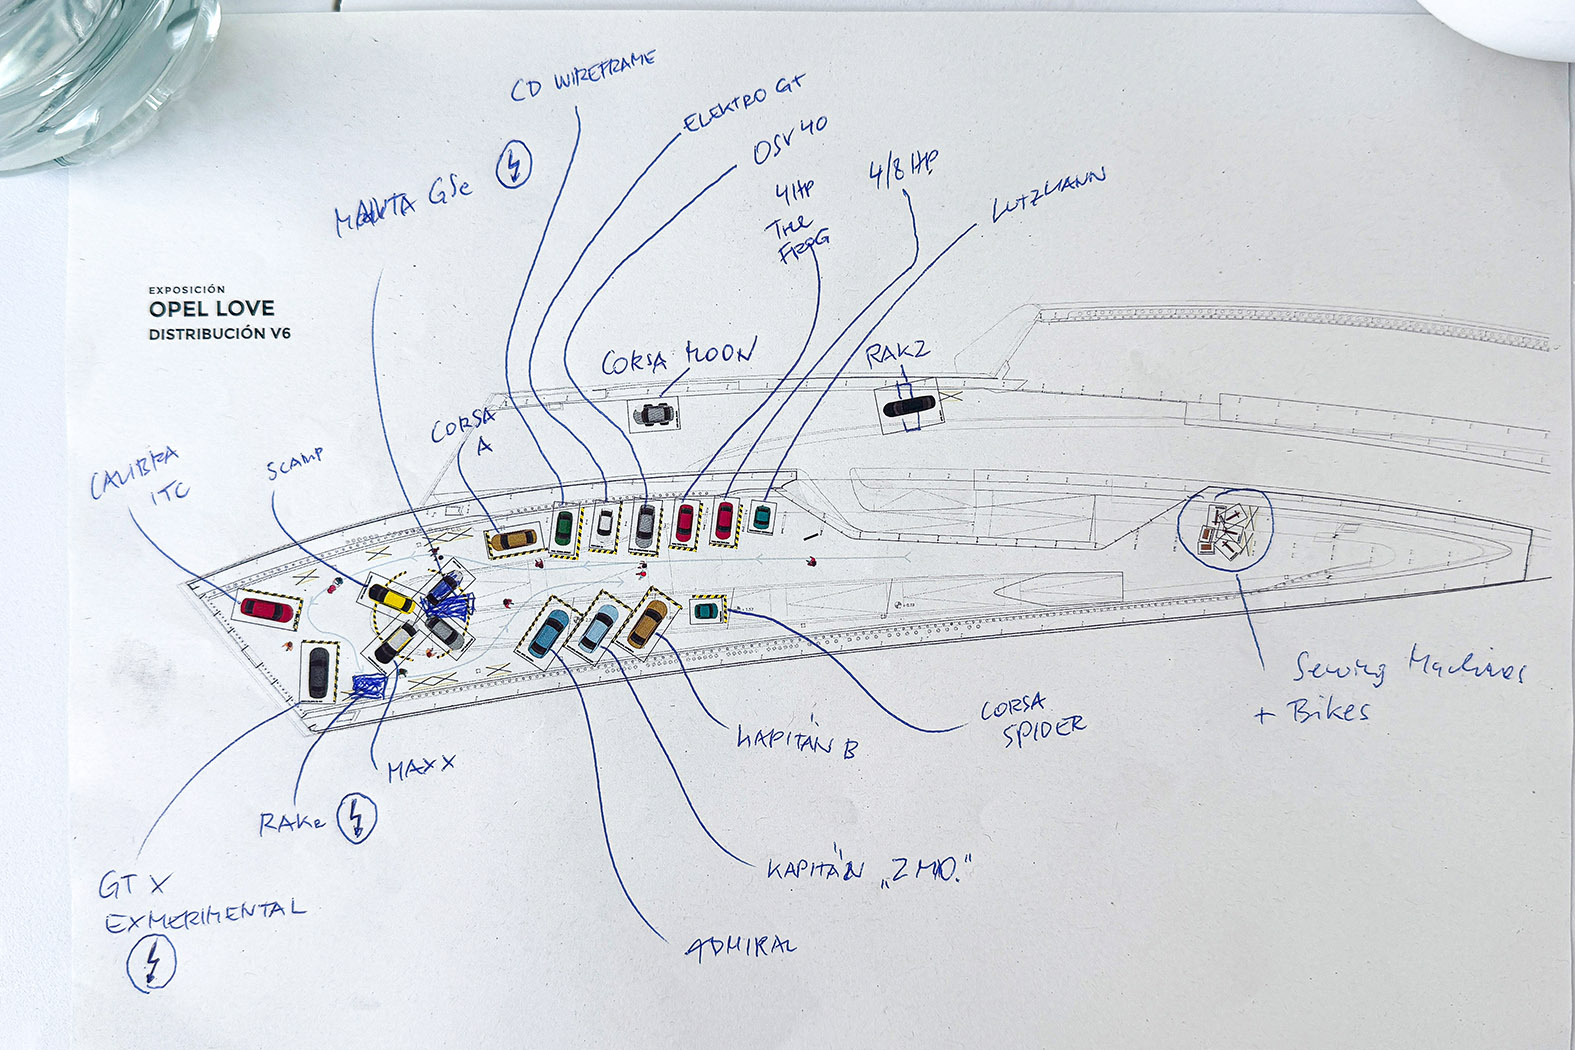 CD WIREFRAME
ELEKTRO GT
OSV 40
MANTA GSe
4HP
THE
FROG
4/8 HP
LUTZMANN
EXPOSICIÓN
OPEL LOVE
DISTRIBUCIÓN V6
CORSA MOON
RAK2
CORSA
A
CALIBRA
ITC
SCAMP
Sewing Machines
+ Bikes
CORSA
SPIDER
KAPITÁN B
MAXX
RAKe
KAPITÁN „2 MIO."
GT X
EXMERIMENTAL
ADMIRAL